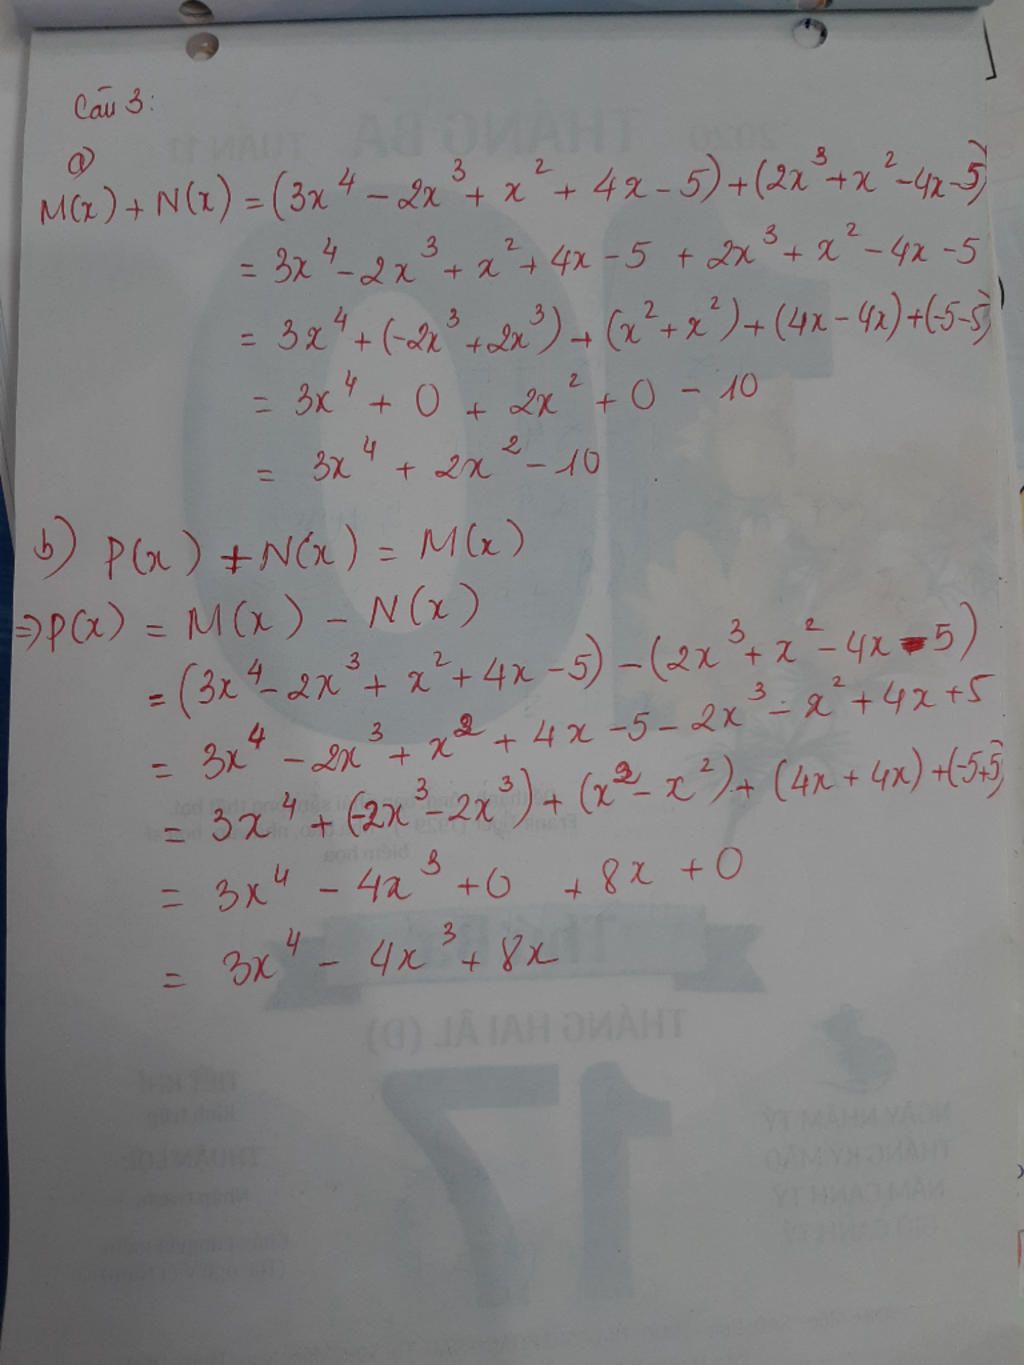 Câu 3:
a)
M(x) + N(x) = (3x⁴ - 2x³ + x² + 4x - 5) + (2x³ + x² - 4x - 5)
= 3x⁴ - 2x³ + x² + 4x - 5 + 2x³ + x² - 4x - 5
= 3x⁴ + (-2x³ + 2x³) + (x² + x²) + (4x - 4x) + (-5 - 5)
= 3x⁴ + 0 + 2x² + 0 - 10
= 3x⁴ + 2x² - 10
b) P(x) + N(x) = M(x)
⇒ P(x) = M(x) - N(x)
= (3x⁴ - 2x³ + x² + 4x - 5) - (2x³ + x² - 4x - 5)
= 3x⁴ - 2x³ + x² + 4x - 5 - 2x³ - x² + 4x + 5
= 3x⁴ + (-2x³ - 2x³) + (x² - x²) + (4x + 4x) + (-5+5)
= 3x⁴ - 4x³ + 0 + 8x + 0
= 3x⁴ - 4x³ + 8x
THÁNG BA
TUẦN 11
2020
10
THÁNG HAI ÂL (Đ)
17
NGÀY NHÂM TÝ
THÁNG KỶ MÃO
NĂM CANH TÝ